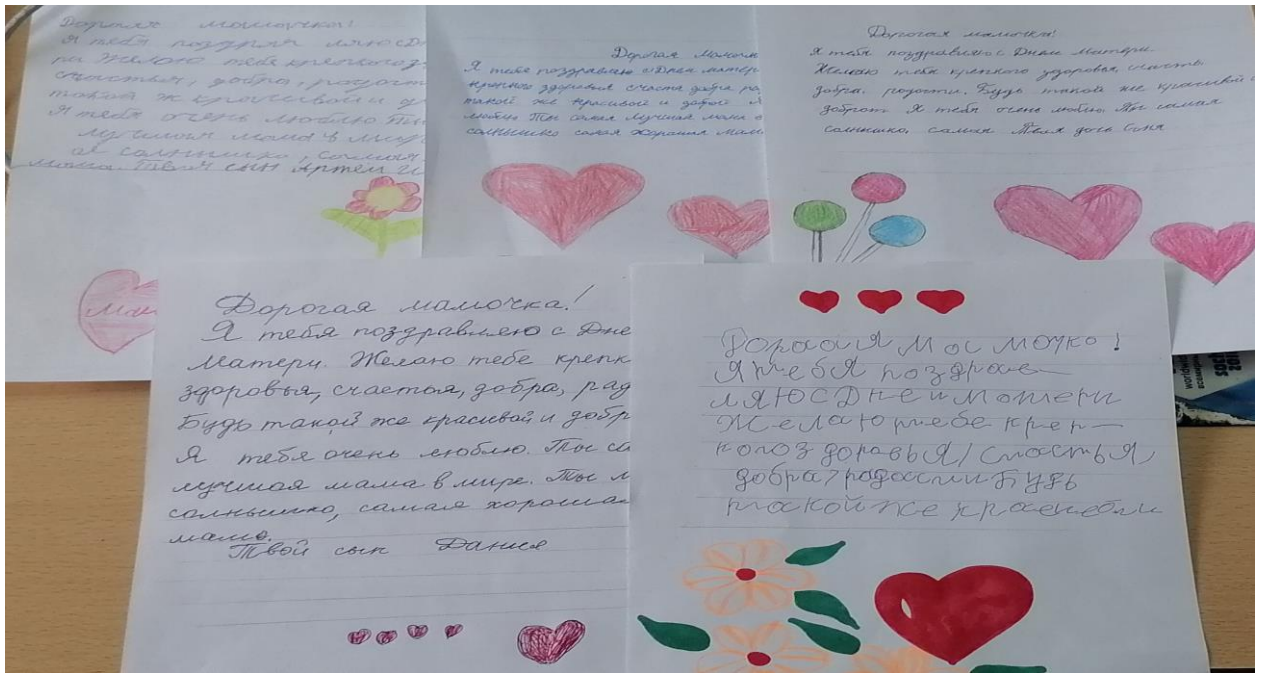 Дорогая мамочка!
Я тебя поздрав ляю с Дн
ри Желаю тебе крепкого з
счастья, добра, радост
такой ж красивой и д
Я тебя очень люблю Ты
лучшая мама в мир
ое солнышко, самая
мама. Твой сын Артем
Дорогая мамочк
Я тебя поздравляю с Днем матер
крепкого здоровья счастя добра ра
такой же красивой и доброй
люблю Ты самая лучшая мама
солнышко самая хорошая мам
Дорогая мамочка!
Я тебя поздравляю с Днем матери.
Желаю тебе крепкого здоровья, счастя
добра, радости. Будь такой же красивой и
Я тебя очень люблю. Ты самая
солнышко, самая Твоя дочь
Дорогая мамочка!
Я тебя поздравляю с Дне
Матери. Желаю тебе крепк
здоровья, счастья, добра, рад
Будь такой же красивой и добр
Я тебя очень люблю. Ты са
лучшая мама в мире. Ты м
солнышко, самая хорошая
мама.
Твой сын Данил
мам
Я тебя поздрав—
ляю с Днем Матери
Желаю тебе креп—
кого здоровья, счастья,
добра, радости Будь
такой же